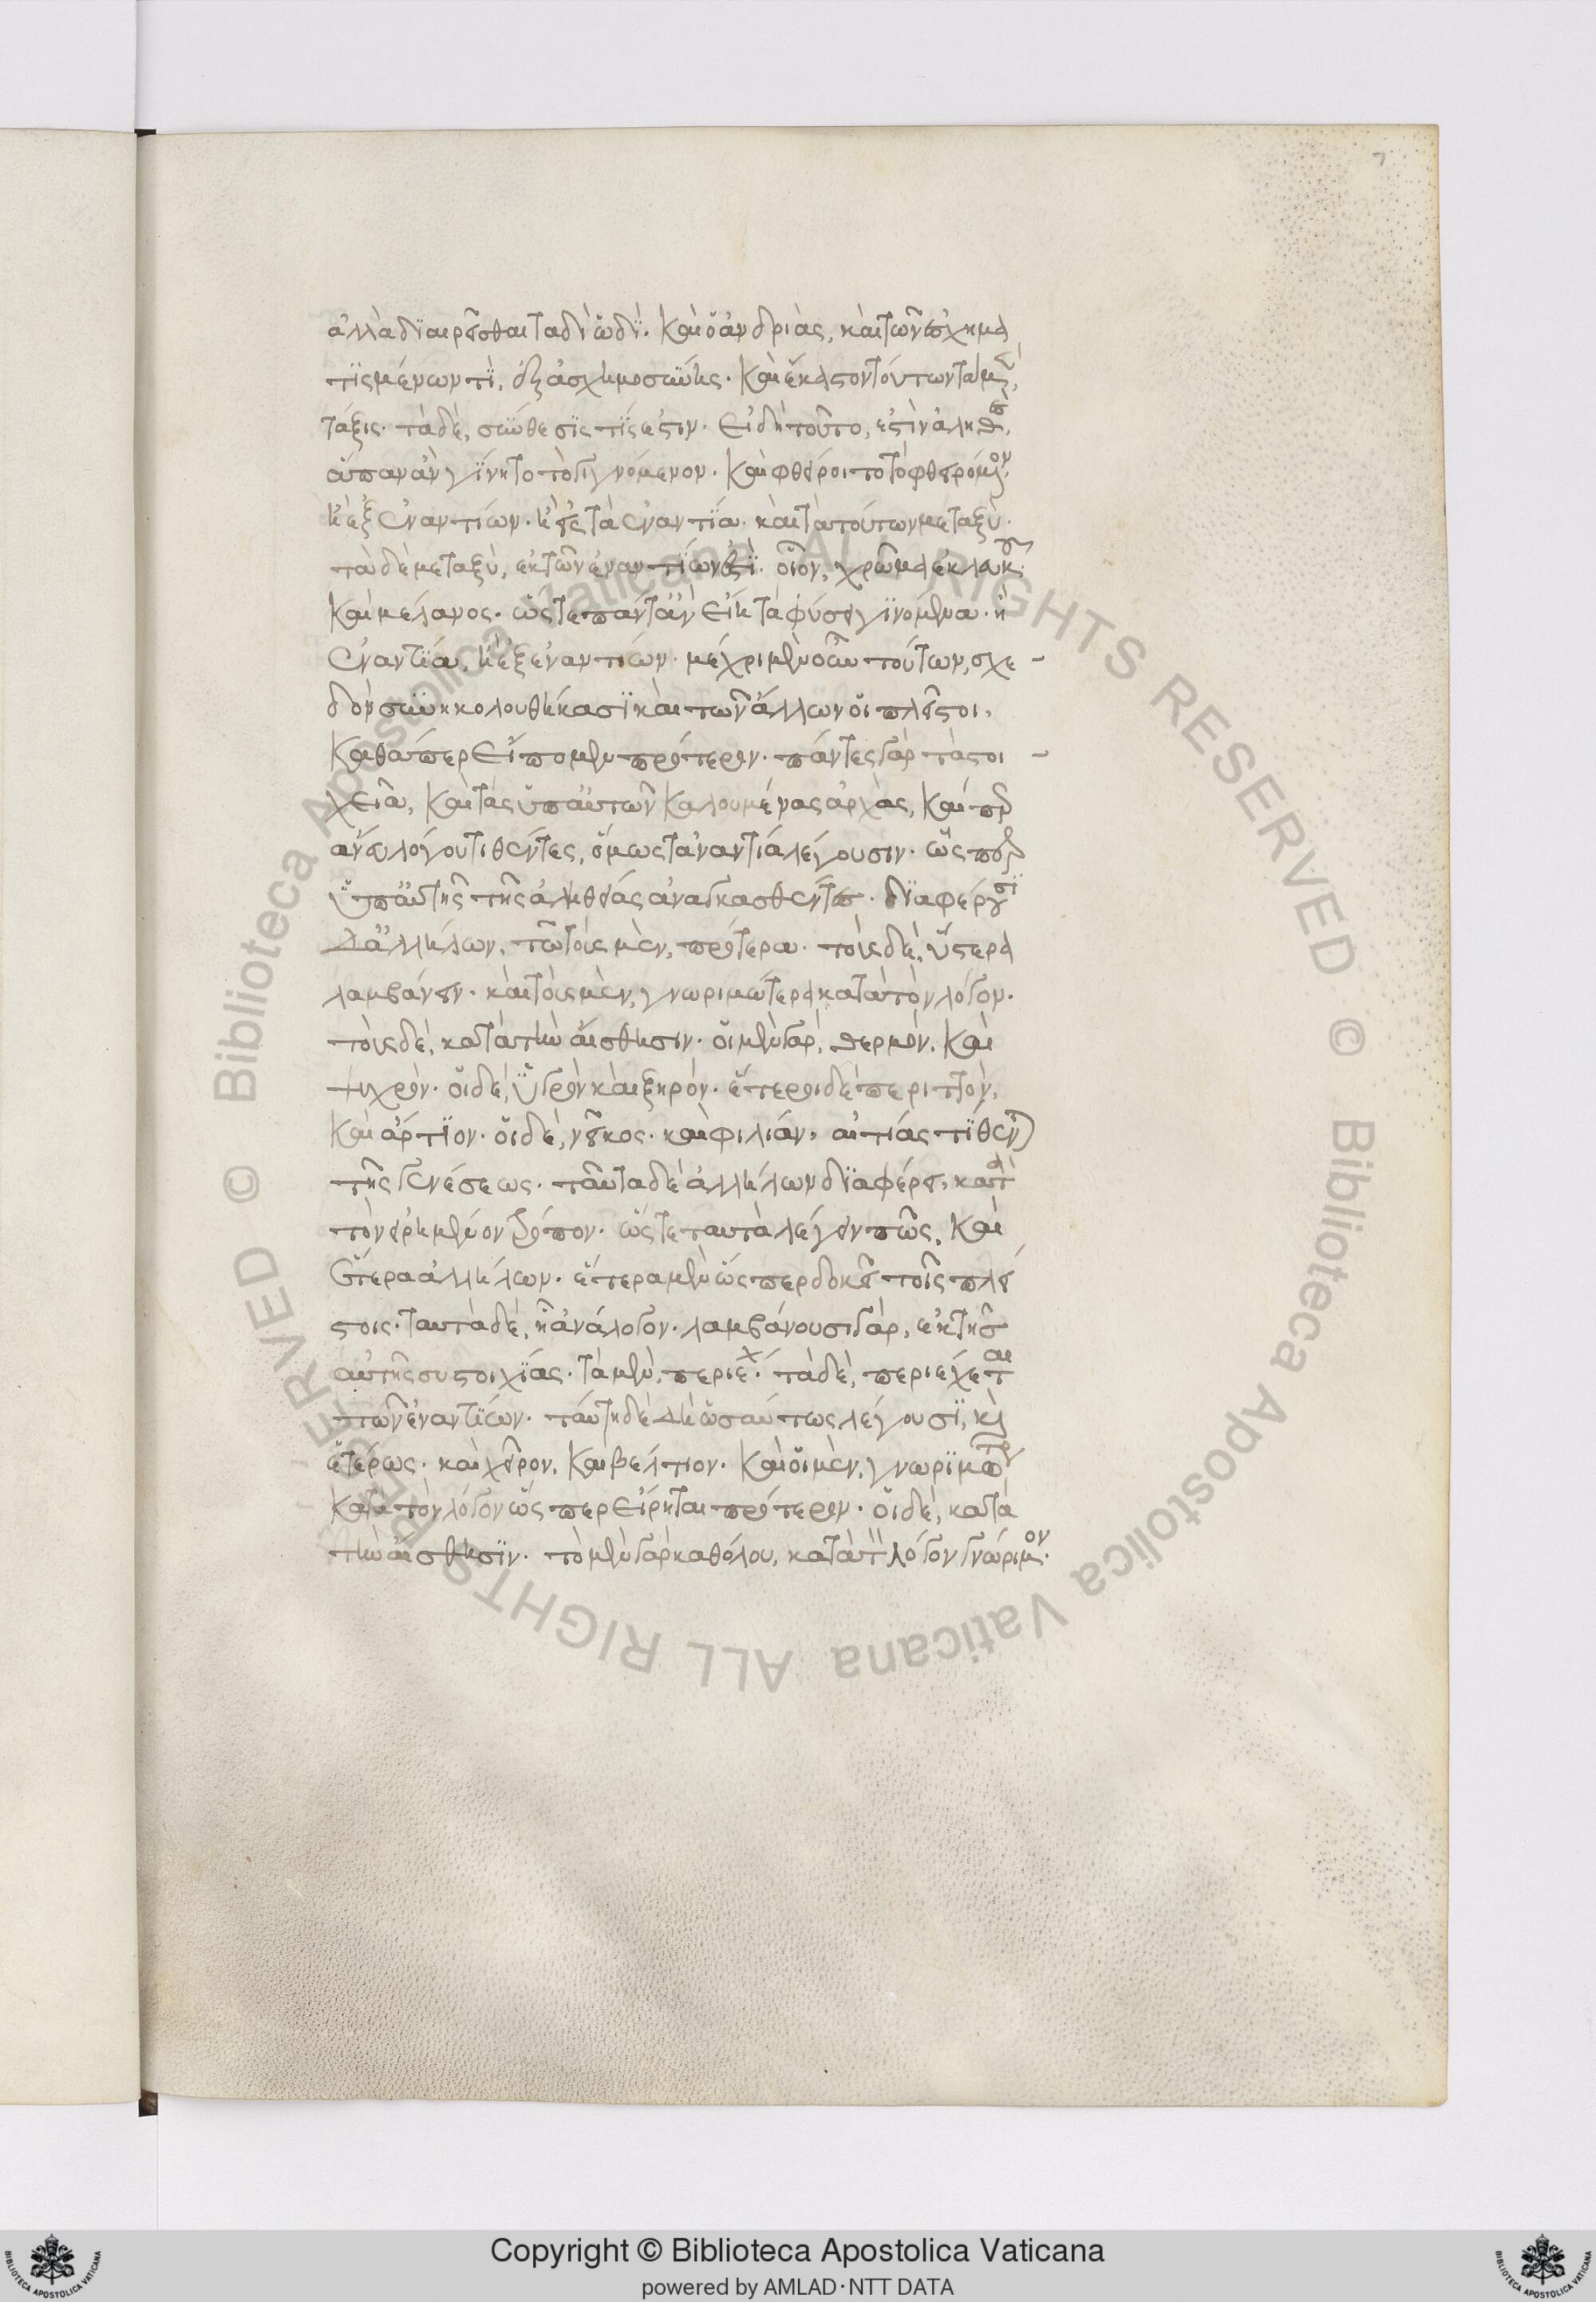 7
ἀλλὰ διαιρεῖσθαι ταδὶ ὡδί. καὶ ὁ ἀνδριὰς, καὶ τῶν ἐσχημα
τισμένων τὶ, ἐξ ἀσχημοσύνης. καὶ ἕκαστον τούτων τὰ μὲν,
τάξις. τὰ δὲ, σύνθεσις τίς ἐστιν. εἰ δὴ τοῦτο, ἐστὶν ἀληθὲς,
ἅπαν ἂν γίνητο τὸ γιγνόμενον. καὶ φθείροιτο τὸ φθειρόμενον,
ἢ ἐξ ἐναντίων. ἢ εἰς τὰ ἐναντία. καὶ τὰ τούτων μεταξύ.
τὰ δὲ μεταξὺ, ἐκ τῶν ἐναντίων ἐστὶ. οἷον, χρῶμα ἐκ λευκοῦ.
καὶ μέλανος. ὥστε πάντ' ἂν εἴη τὰ φύσει γινόμενα. ἢ
ἐναντία, ἢ ἐξ ἐναντίων. μέχρι μὲν οὖν τούτων, σχε-
δὸν συνηκολουθήκασι καὶ τῶν ἄλλων οἱ πλεῖστοι,
καθάπερ εἴπομεν πρότερον. πάντες γὰρ τὰ στοι-
χεῖα, καὶ τὰς ὑπ' αὐτῶν καλουμένας ἀρχὰς, καίπερ
ἄνευ λόγου τιθέντες, ὅμως τἀναντία λέγουσιν. ὥσπερ
ὑπ' αὐτῆς τῆς ἀληθείας ἀναγκασθέντες. διαφέρουσι
δ' ἀλλήλων, τῷ τοὺς μὲν, πρότερα. τοὺς δὲ, ὕστερα
λαμβάνειν. καὶ τοὺς μὲν, γνωριμώτερα κατὰ τὸν λόγον.
τοὺς δὲ, κατὰ τὴν αἴσθησιν. οἱ μὲν γὰρ, θερμὸν, καὶ
ψυχρόν. οἱ δὲ, ὑγρὸν καὶ ξηρόν. ἕτεροι δὲ περιττὸν,
καὶ ἄρτιον. οἱ δὲ, νεῖκος. καὶ φιλίαν, αἰτίας τίθενται
τῆς γενέσεως. ταῦτα δὲ ἀλλήλων διαφέρει, κατὰ
τὸν εἰρημένον τρόπον. ὥστε ταυτὰ λέγειν πῶς, καὶ
ἕτερα ἀλλήλων. ἕτερα μὲν ὥσπερ δοκεῖ τοῖς πλεί
στοις. ταυτὰ δὲ, ᾗ ἀνάλογον. λαμβάνουσι γὰρ, ἐκ τῆς
αὐτῆς συστοιχίας. τὰ μὲν, περιέχει. τὰ δὲ, περιέχεται
τῶν ἐναντίων. ταύτῃ δὲ δὴ ὡσαύτως λέγουσι, καὶ
ἑτέρως. καὶ χεῖρον, καὶ βέλτιον. καὶ οἱ μὲν, γνωριμώτερα
κατὰ τὸν λόγον ὥσπερ εἴρηται πρότερον. οἱ δὲ, κατὰ
τὴν αἴσθησιν. τὸ μὲν γὰρ καθόλου, κατὰ τὸν λόγον γνώριμον.
© Biblioteca Apostolica Vaticana ALL RIGHTS RESERVED © Biblioteca Apostolica Vaticana ALL RIGHTS RESERVED
Copyright © Biblioteca Apostolica Vaticana
powered by AMLAD·NTT DATA
BIBLIOTECA APOSTOLICA VATICANA
BIBLIOTECA APOSTOLICA VATICANA